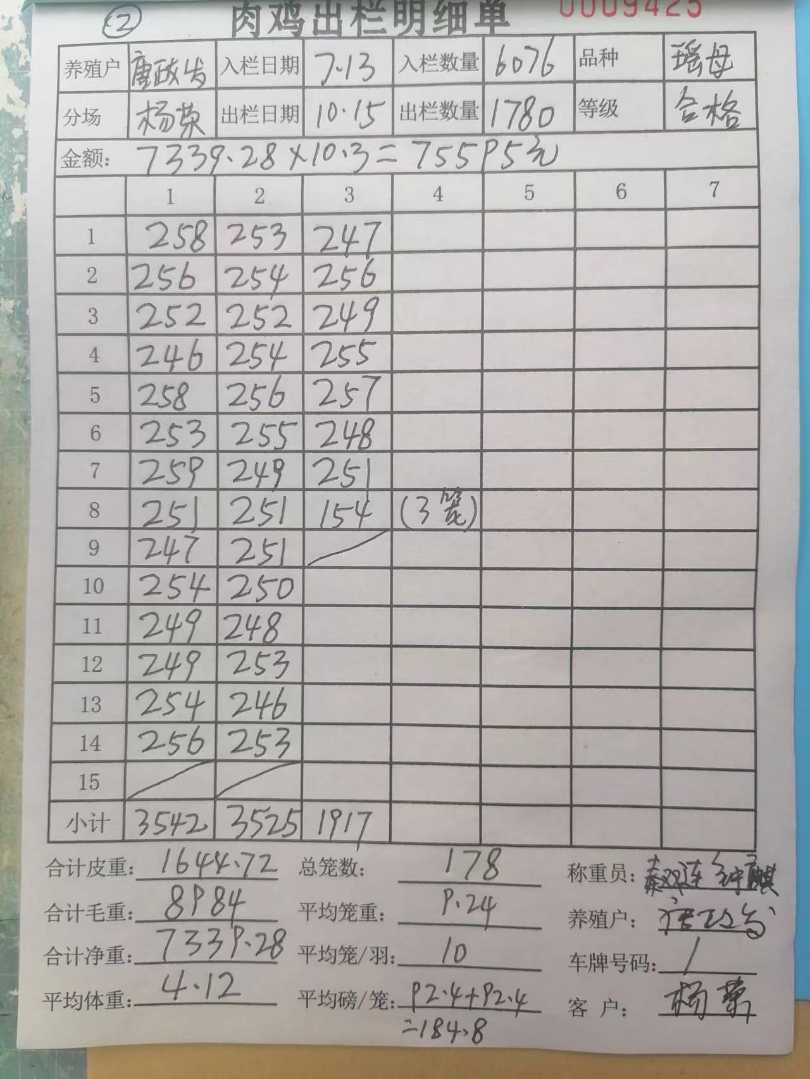 ② 肉鸡出栏明细单 0009425
养殖户 唐政发 入栏日期 7.13 入栏数量 6076 品种 瑶母
分场 杨荣 出栏日期 10.15 出栏数量 1780 等级 合格
金额: 7339.28×10.3=75595元
1 2 3 4 5 6 7
1 258 253 247
2 256 254 256
3 252 252 249
4 246 254 255
5 258 256 257
6 253 255 248
7 259 249 251
8 251 251 154 (3笼)
9 247 251
10 254 250
11 249 248
12 249 253
13 254 246
14 256 253
15
小计 3542 3525 1917
合计皮重: 1644.72 总笼数: 178 称重员:
合计毛重: 8984 平均笼重: 9.24 养殖户:
合计净重: 7339.28 平均笼/羽: 10 车牌号码: /
平均体重: 4.12 平均磅/笼: 92.4+92.4 客 户: 杨荣
=184.8